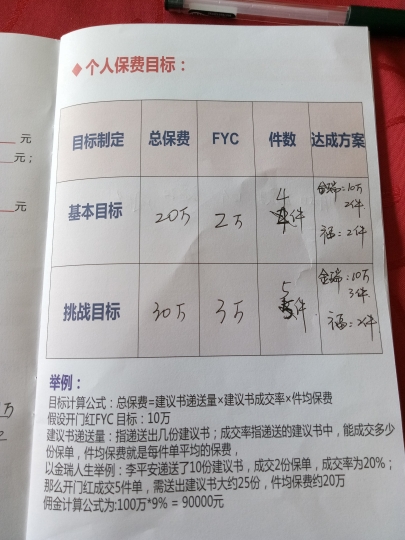 元
元；
元
◆个人保费目标：
目标制定 总保费 FYC 件数 达成方案
基本目标 20万 2万 4件 金瑞：10万
2件
福：2件
挑战目标 30万 3万 5件 金瑞：10万
3件
福：2件
举例：
目标计算公式：总保费=建议书递送量×建议书成交率×件均保费
假设开门红FYC目标：10万
建议书递送量：指递送出几份建议书；成交率指递送的建议书中，能成交多少
份保单，件均保费就是每件单平均的保费，
以金瑞人生举例：李平安递送了10份建议书，成交2份保单，成交率为20%；
那么开门红成交5件单，需送出建议书大约25份，件均保费约20万
佣金计算公式为:100万*9% = 90000元
万
2